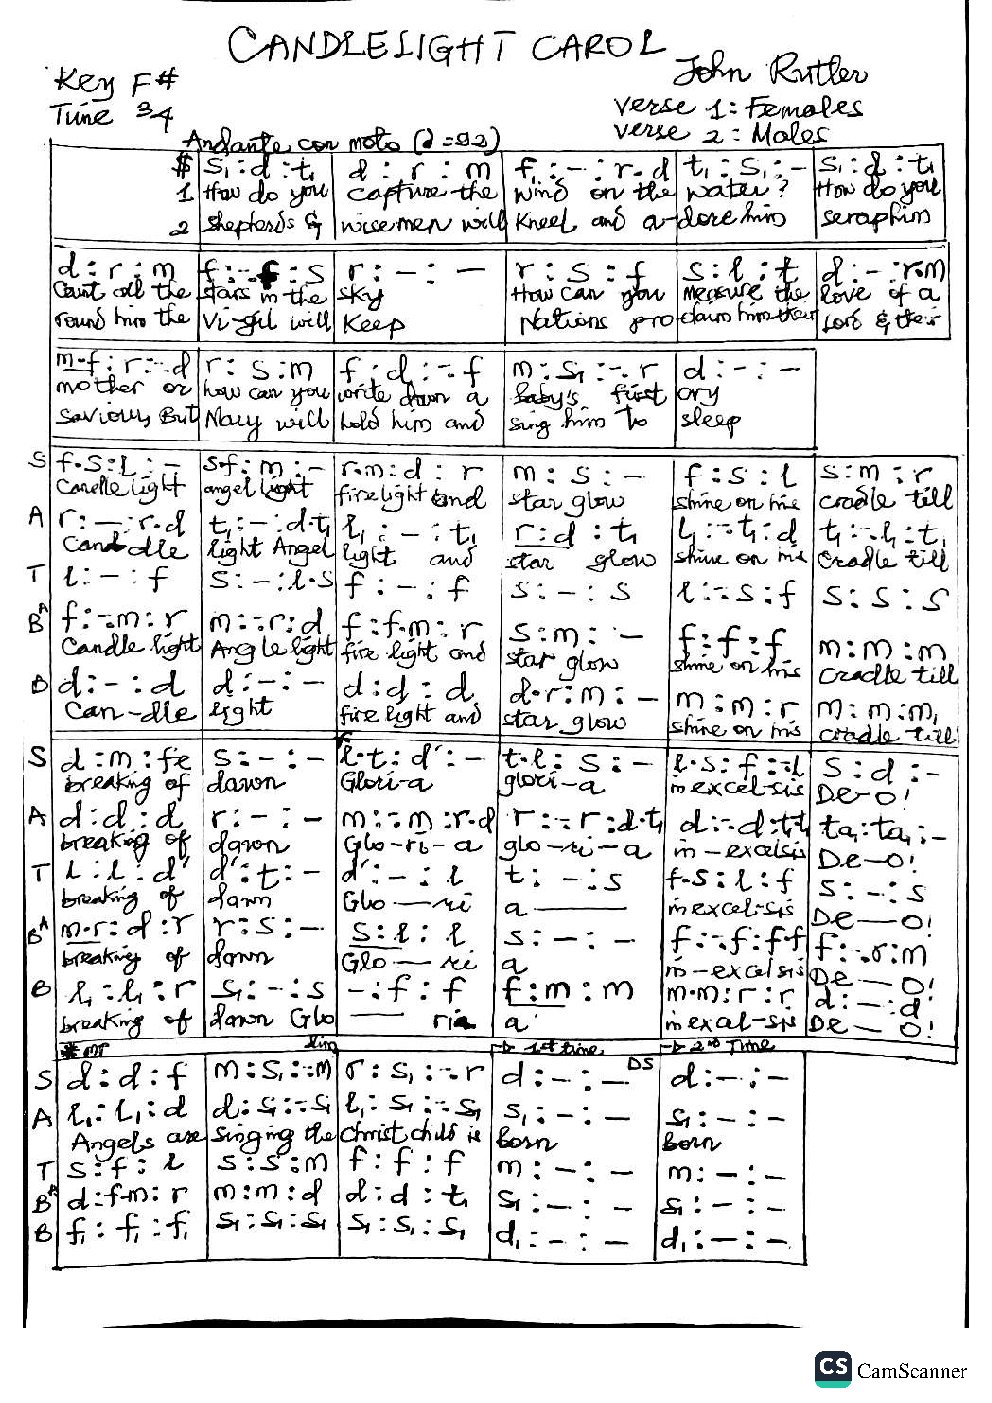 CANDLELIGHT CAROL
Key F# John Rutler
Time 3/4 verse 1: Females
verse 2: Males
Andante con moto (d = 92)
$ S₁ : d : t₁ | d : r : m | f : - : r.d | t₁ : S₁ : - | S₁ : d : t₁
1 How do you | capture the | wind on the | water? | How do you
2 Shepherds & | wisemen will | Kneel and a- | dore him | seraphim
d : r : m | f : -.f : s | r : - : - | r : s : f | s : l : t | d : - : r.m
Count all the | stars in the | sky | How can you | measure the | love of a
round him the | Vi-gil will | Keep | Nations pro | claim him their | Lord & their
m.f : r : -.d | r : s : m | f : d : -.f | m : S₁ : -.r | d : - : -
mother or | how can you | write down a | baby's first | cry
Saviour, But | Mary will | hold him and | sing him to | sleep
S f.s : l : - | s.f : m : - | r.m : d : r | m : s : - | f : s : l | s : m : r
Candle light | angel light | firelight and | star glow | shine on his | cradle till
A r : - : r.d | t₁ : - : d.t₁ | l₁ : - : t₁ | r : d : t₁ | l₁ : -.t₁ : d | t₁ : -.l₁ : t₁
Candle | light Angel | light and | star glow | shine on his | Cradle till
T l : - : f | s : - : l.s | f : - : f | s : - : s | l : -.s : f | s : s : s
BA f : -.m : r | m : -.r : d | f : f.m : r | s : m : - | f : f : f | m : m : m
Candle light | Angle light | fire light and | star glow | shine on his | cradle till
B d : - : d | d : - : - | d : d : d | d.r : m : - | m : m : r | m : m : m,
Can-dle | light | fire light and | star glow | shine on his | cradle till
S d : m : fe | s : - : - | l.t : d' : - | t.l : s : - | l.s : f : -.l | s : d : -
breaking of | dawn | Glori-a | glori-a | in excel-sis | De-o!
A d : d : d | r : - : - | m : -.m : r.d | r : -.r : d.t₁ | d : -.d : t₁.t₁ | ta₁ : ta₁ : -
breaking of | dawn | Glo-ri-a | glo-ri-a | in-excelsis | De-o!
T l : l : d' | d' : t : - | d' : - : l | t : - : s | f.s : l : f | s : - : s
breaking of | dawn | Glo — ri | a — | in excel-sis | De — O!
BA m.r : d : r | r : s : - | s : l : l | s : - : - | f : -.f : f.f | f : -.r : m
breaking of | dawn | Glo — ri | a | in-excelsis | De — O!
B l₁ : l₁ : r | S₁ : - : s | - : f : f | f : m : m | m.m : r : r | d : - : d
breaking of | down Glo | — ria | a | in excal-sis | De — O!
1st time | 2nd Time
S d : d : f | m : S₁ : -.m | r : S₁ : -.r | d : - : - DS | d : - : -
A l₁ : l₁ : d | d : S₁ : -.S₁ | l₁ : S₁ : -.S₁ | S₁ : - : - | S₁ : - : -
Angels are | singing the | Christ child is | Born | Born
T s : f : l | s : s : m | f : f : f | m : - : - | m : - : -
BA d : f.m : r | m : m : d | d : d : t₁ | S₁ : - : - | S₁ : - : -
B f₁ : f₁ : f₁ | S₁ : S₁ : S₁ | S₁ : S₁ : S₁ | d₁ : - : - | d₁ : - : -
CS CamScanner